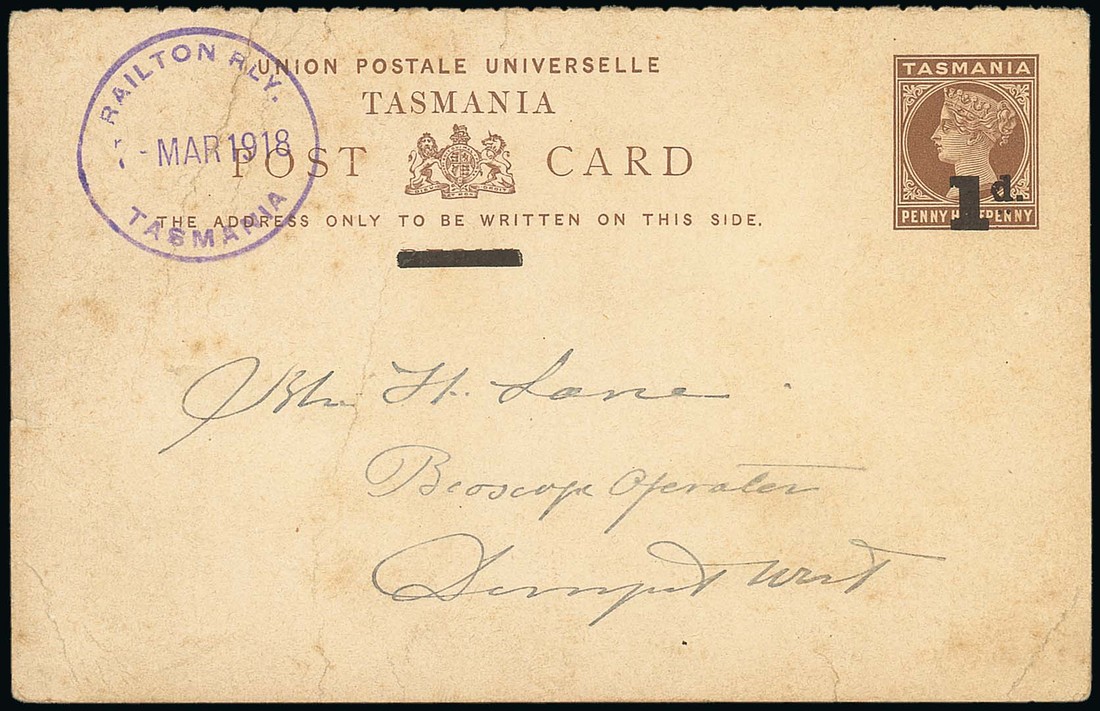 RAILTON RLY.
7 - MAR 1918
TASMANIA
UNION POSTALE UNIVERSELLE
TASMANIA
POST CARD
THE ADDRESS ONLY TO BE WRITTEN ON THIS SIDE.
TASMANIA
1d.
PENNY HALFPENNY
H. Lane
Bioscope Operator
West